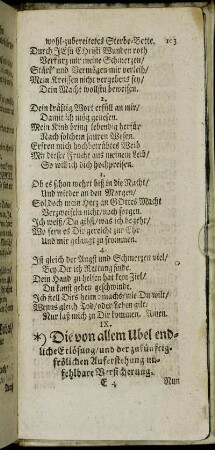 wohl-zubereitetes Sterbe-Bette. 103
Durch JEsu Christi Wunden roth
Verkürz mir meine Schmertzen/
Stärk' und Vermögen mir verleih/
Mein Kreissen nicht vergebens sey/
Dein Macht wollstu beweisen.
2.
Dein kräftig Wort erfüll an mir/
Damit ich mög genesen.
Mein Kind bring lebendig herfür
Nach solchem sauren Wesen.
Erfreu mich hochbetrübtes Weib
Mit dieser Frucht aus meinem Leib/
So will ich dich hochpreisen.
3.
Ob es schon wehrt biß in die Nacht/
Und wieder an den Morgen/
Sol doch mein Hertz an GOttes Macht
Verzweifeln nicht/ noch sorgen.
Ich weiß/ Du gibst/ was ich begehr/
Wo fern es Dir gereicht zur Ehr
Und mir gelangt zu frommen.
4.
Ist gleich der Angst und Schmertzen viel/
Bey Dir ich Rettung finde.
Dein Hand zu helfen hat kein Ziel/
Du kanst geben geschwinde.
Ich stell Dirs heim/ machs/ wie Du wilt/
Wenns gleich Tod/ oder Leben gilt/
Nur laß mich zu Dir kommen. Amen.
IX.
*) Die von allem Ubel end-
liche Erlösung/ und der zukünftig-
frölichen Auferstehung un-
fehlbare Versicherung.
E 4 Nun